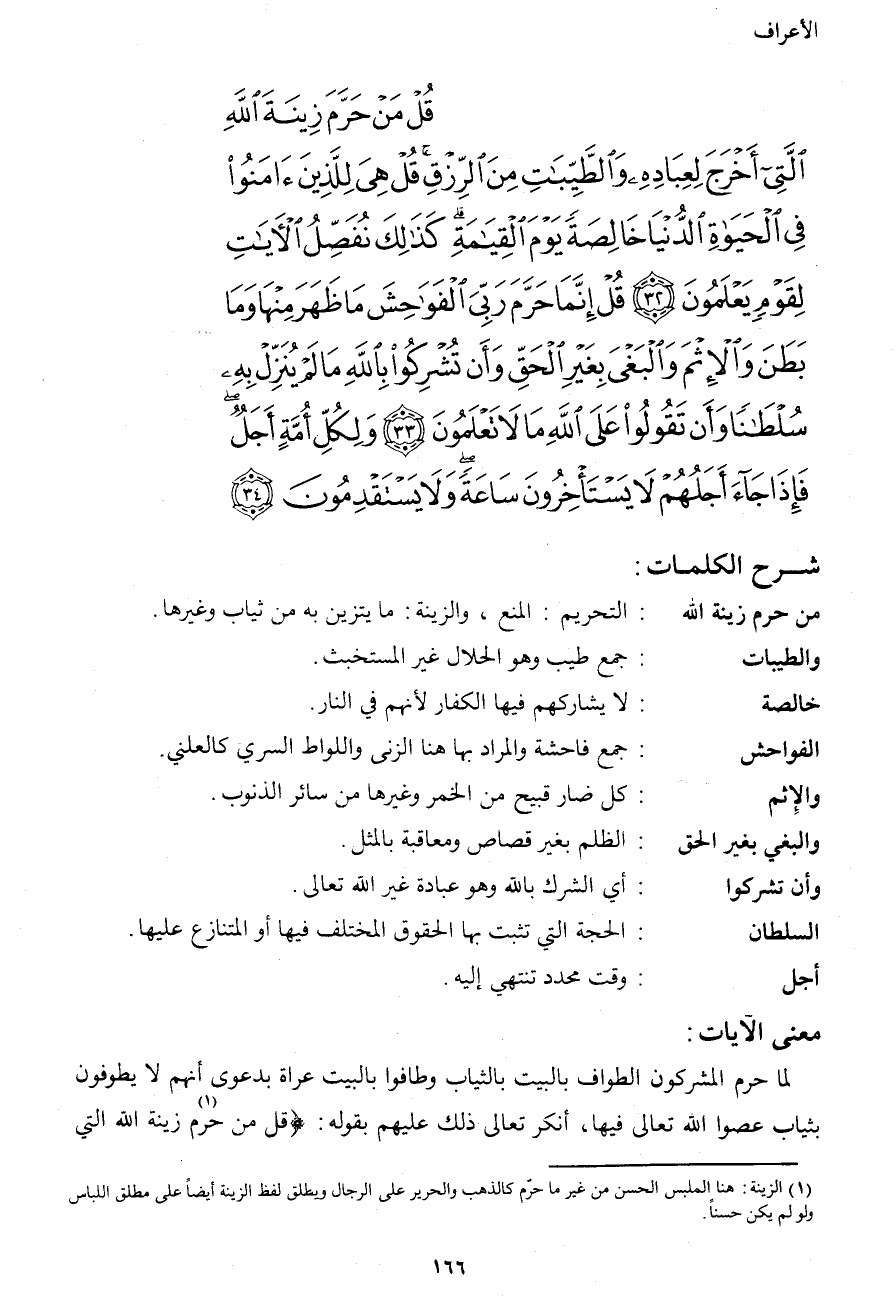 الأعراف
قُلْ مَنْ حَرَّمَ زِينَةَ ٱللَّهِ
ٱلَّتِىٓ أَخْرَجَ لِعِبَادِهِۦ وَٱلطَّيِّبَٰتِ مِنَ ٱلرِّزْقِۚ قُلْ هِىَ لِلَّذِينَ ءَامَنُوا۟
فِى ٱلْحَيَوٰةِ ٱلدُّنْيَا خَالِصَةً يَوْمَ ٱلْقِيَٰمَةِۗ كَذَٰلِكَ نُفَصِّلُ ٱلْأَيَٰتِ
لِقَوْمٍ يَعْلَمُونَ ٣٢ قُلْ إِنَّمَا حَرَّمَ رَبِّىَ ٱلْفَوَٰحِشَ مَا ظَهَرَ مِنْهَا وَمَا
بَطَنَ وَٱلْإِثْمَ وَٱلْبَغْىَ بِغَيْرِ ٱلْحَقِّ وَأَن تُشْرِكُوا۟ بِٱللَّهِ مَا لَمْ يُنَزِّلْ بِهِۦ
سُلْطَٰنًا وَأَن تَقُولُوا۟ عَلَى ٱللَّهِ مَا لَا تَعْلَمُونَ ٣٣ وَلِكُلِّ أُمَّةٍ أَجَلٌۖ
فَإِذَا جَآءَ أَجَلُهُمْ لَا يَسْتَأْخِرُونَ سَاعَةًۖ وَلَا يَسْتَقْدِمُونَ ٣٤
شــرح الكلمـات :
من حرم زينة الله : التحريم : المنع ، والزينة : ما يتزين به من ثياب وغيرها.
والطيبات : جمع طيب وهو الحلال غير المستخبث.
خالصة : لا يشاركهم فيها الكفار لأنهم في النار.
الفواحش : جمع فاحشة والمراد بها هنا الزنى واللواط السري كالعلني.
والإثم : كل ضار قبيح من الخمر وغيرها من سائر الذنوب .
والبغي بغير الحق : الظلم بغير قصاص ومعاقبة بالمثل.
وأن تشركوا : أي الشرك بالله وهو عبادة غير الله تعالى.
السلطان : الحجة التي تثبت بها الحقوق المختلف فيها أو المتنازع عليها.
أجل : وقت محدد تنتهي إليه .
معنى الآيات :
لما حرم المشركون الطواف بالبيت بالثياب وطافوا بالبيت عراة بدعوى أنهم لا يطوفون
بثياب عصوا الله تعالى فيها، أنكر تعالى ذلك عليهم بقوله : ﴿قل من حرم(١) زينة الله التي
(١) الزينة : هنا الملبس الحسن من غير ما حرّم كالذهب والحرير على الرجال ويطلق لفظ الزينة أيضاً على مطلق اللباس
ولو لم يكن حسناً.
١٦٦